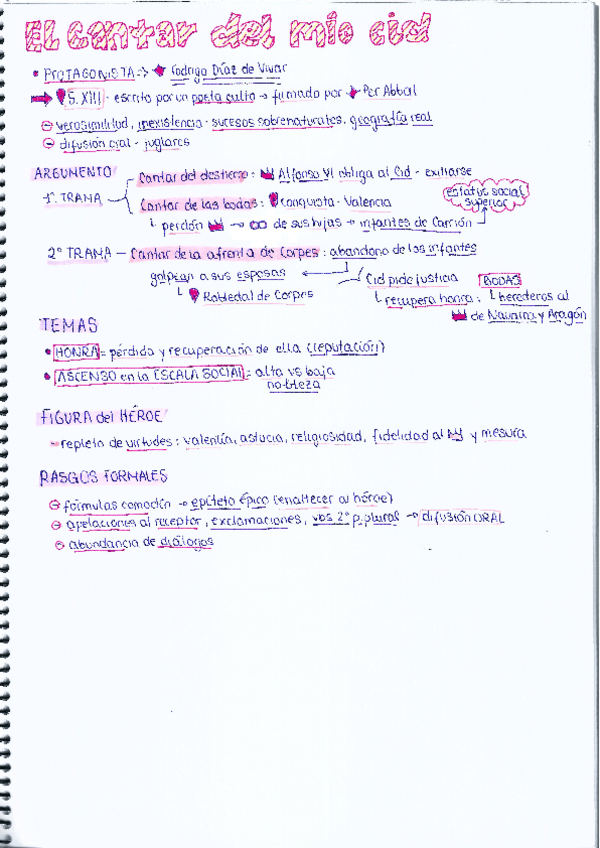 El cantar del mio cid
• PROTAGONISTA => Rodrigo Díaz de Vivar
→ S. XIII - escrito por un poeta culto → firmado por Per Abbat
⊖ verosimilitud, inexistencia - sucesos sobrenaturales, geografía real
⊖ difusión oral - juglares
ARGUMENTO
Cantar del destierro: Alfonso VI obliga al Cid - exiliarse
1ª. TRAMA
Cantar de las bodas: conquista - Valencia
estatus social superior
↳ perdón → ∞ de sus hijas → infantes de Carrión
2ª TRAMA — Cantar de la afrenta de Corpes: abandono de los infantes
golpean a sus esposas
Cid pide justicia BODAS
↳ Robledal de Corpes
↳ recupera honra: ↳ herederos al
de Navarra y Aragón
TEMAS
• HONRA = pérdida y recuperación de ella (reputación)
• ASCENSO en la ESCALA SOCIAL = alta vs baja
nobleza
FIGURA del HÉROE
- repleto de virtudes: valentía, astucia, religiosidad, fidelidad al y mesura
RASGOS FORMALES
⊖ fórmulas comodín → epíteto épico (enaltecer al héroe)
⊖ apelaciones al receptor, exclamaciones, vos 2ª p. plural → difusión ORAL
⊖ abundancia de diálogos